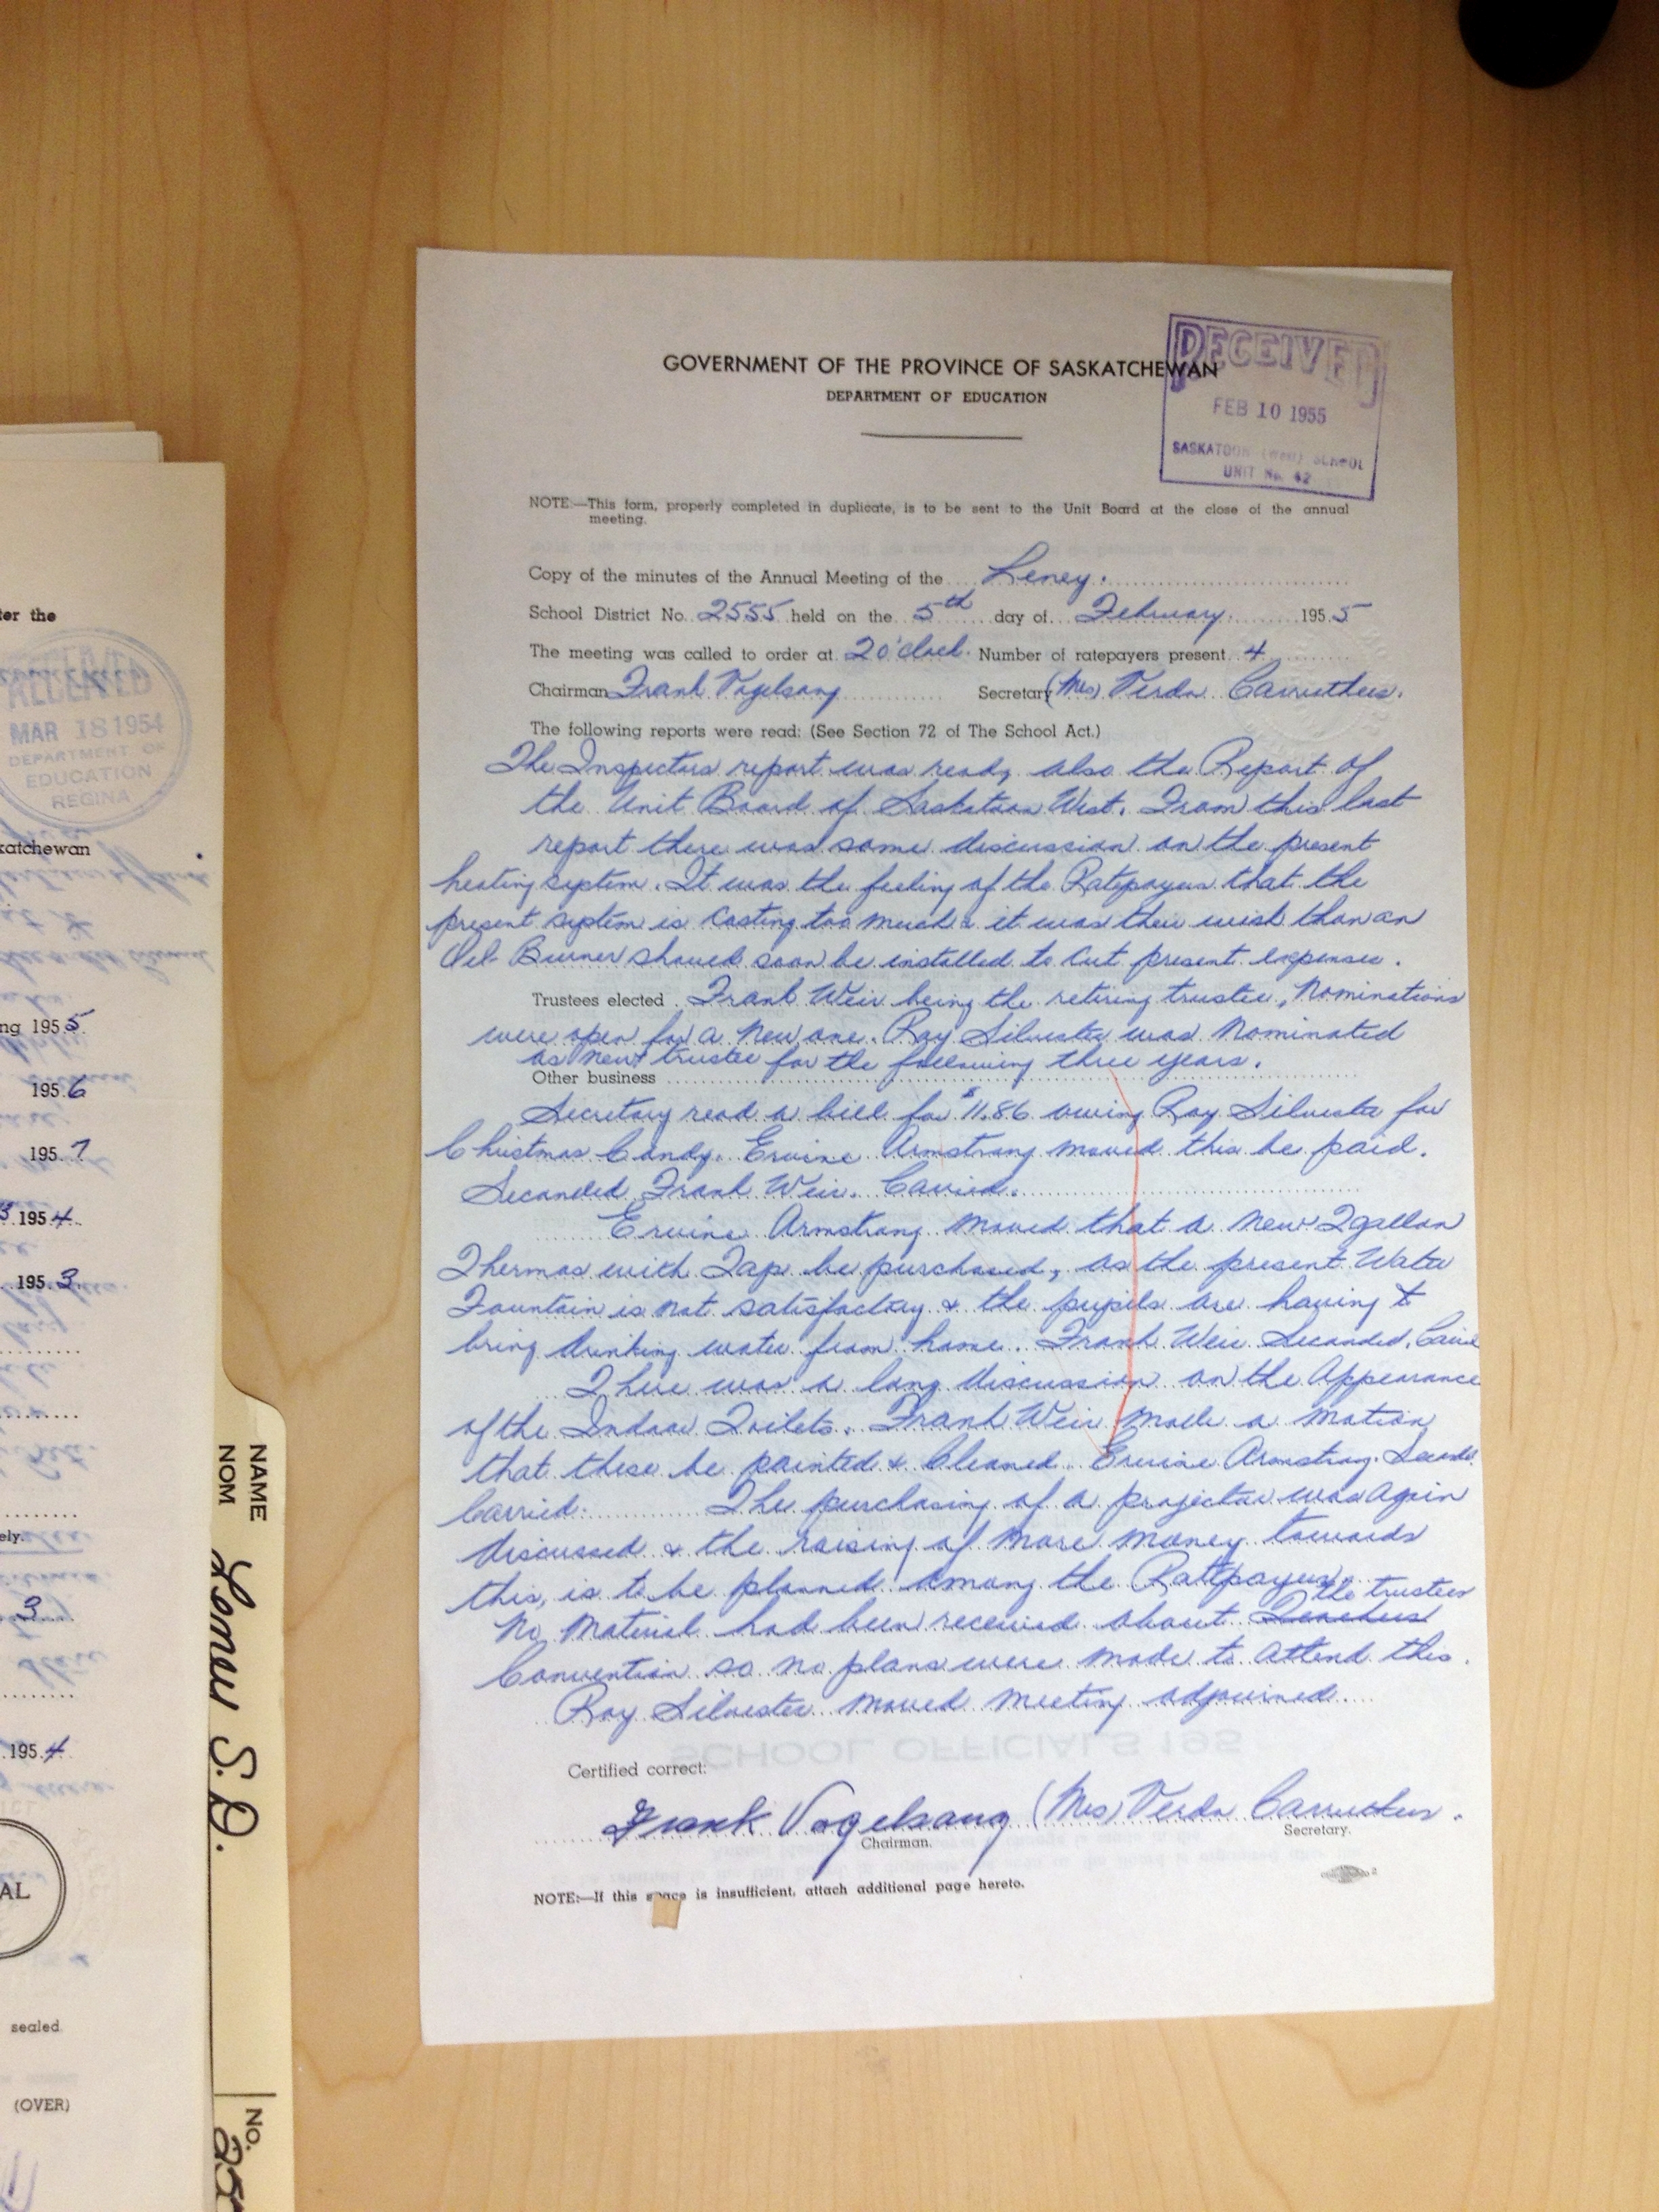 GOVERNMENT OF THE PROVINCE OF SASKATCHEWAN
DEPARTMENT OF EDUCATION
RECEIVED
FEB 10 1955
SASKATOON (West) SCHOOL
UNIT No. 42
NOTE:—This form, properly completed in duplicate, is to be sent to the Unit Board at the close of the annual
meeting.
Copy of the minutes of the Annual Meeting of the Leney.
School District No. 2555 held on the 5th day of February 1955
The meeting was called to order at 2 o'clock. Number of ratepayers present 4
Chairman Frank Vogelsang Secretary (Mrs) Verda Carruthers.
The following reports were read: (See Section 72 of The School Act.)
The Inspectors report was read, also the Report of
the Unit Board of Saskatoon West. From this last
report there was some discussion on the present
heating system. It was the feeling of the Ratepayers that the
present system is costing too much & it was their wish than an
Oil Burner should soon be installed to cut present expenses.
Trustees elected Frank Weir being the retiring trustee, Nominations
were open for a new one. Ray Silvester was nominated
as new trustee for the following three years.
Other business
Secretary read a bill for $11.86 owing Ray Silvester for
Christmas Candy. Ervine Armstrong moved this be paid.
Seconded Frank Weir. Carried.
Ervine Armstrong moved that a new 2 gallon
Thermos with Tap be purchased, as the present Water
Fountain is not satisfactory & the pupils are having to
bring drinking water from home. Frank Weir Seconded.
There was a long discussion on the Appearance
of the Indoor Toilets. Frank Weir made a motion
that these be painted & Cleaned. Ervine Armstrong.
Carried. The purchasing of a projector was again
discussed & the raising of more money towards
this, is to be planned among the Ratepayers.
the trustees
No Material had been received about Teachers
Convention so no plans were made to attend this.
Ray Silvester moved meeting adjourned.
Certified correct:
Frank Vogelsang (Mrs) Verda Carruthers.
Chairman. Secretary.
NOTE:—If this space is insufficient, attach additional page hereto.
ter the
RECEIVED
MAR 18 1954
DEPARTMENT OF
EDUCATION
REGINA
katchewan
ng 1955
1956
1957
1954
1953
ely.
3
1954
AL
sealed
(OVER)
NAME
NOM
Leney S.D.
No.
255